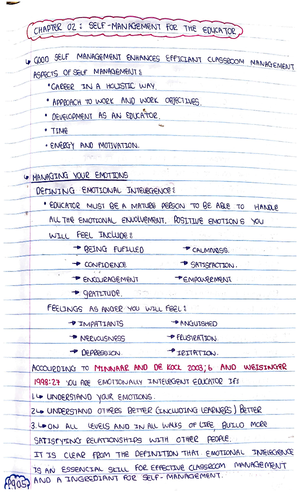 CHAPTER 02: SELF-MANAGEMENT FOR THE EDUCATOR
↳ GOOD SELF MANAGEMENT ENHANCES EFFICIANT CLASSROOM MANAGEMENT
ASPECTS OF SELF MANAGEMENT:
• CAREER IN A HOLISTIC WAY.
• APPROACH TO WORK AND WORK OBJECTIVES.
• DEVELOPMENT AS AN EDUCATOR.
• TIME
• ENERGY AND MOTIVATION.
↳ MANAGING YOUR EMOTIONS
DEFINING EMOTIONAL INTELERGENCE:
• EDUCATOR MUST BE A MATURE PERSON TO BE ABLE TO HANDLE
ALL THE EMOTIONAL ENVOLVEMENT. POSITIVE EMOTIONS YOU
WILL FEEL INCLUDE:
→ BEING FUFILLED → CALMNESS.
→ CONFIDENCE → SATISFACTION.
→ ENCOURAGEMENT → EMPOWERMENT
→ GRATITUDE.
FEELINGS AS ANGER YOU WILL FEEL:
→ IMPATIANTS → ANGUISHED
→ NERVOUSNESS → FRUSTRATION
→ DEPRESSION → IRITATION.
ACCOURDING TO MINNAAR AND DE KOCK 2003;6 AND WEISINGER
1998:27 YOU ARE EMOTIONALLY INTELEGENT EDUCATOR IF:
1.↳ UNDERSTAND YOUR EMOTIONS.
2.↳ UNDERSTAND OTHERS BETTER (INCLUDING LEARNERS) BETTER
3.↳ ON ALL LEVELS AND IN ALL WALKS OF LIFE BUILD MORE
SATISFYING RELATIONSHIPS WITH OTHER PEOPLE.
IT IS CLEAR FROM THE DEFINITION THAT EMOTIONAL INTELERGENCE
IS AN ESSENCIAL SKILL FOR EFFECTIVE CLASSROOM MANAGEMENT
AND A INGREDIANT FOR SELF-MANAGEMENT.